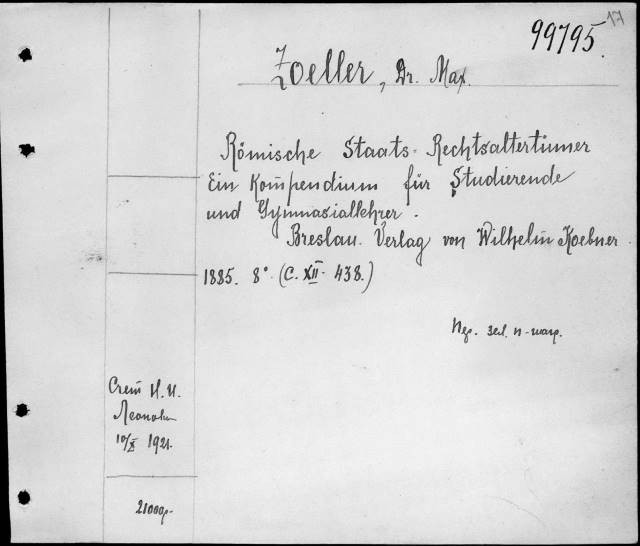 17
99795.
Zoeller, Dr. Max.
Römische Staats- Rechtsaltertümer
Ein Kompendium für Studierende
und Gymnasiallehrer.
Breslau. Verlag von Wilhelm Koebner.
1885. 8° (C. XII. 438.)
1921.
21000р.